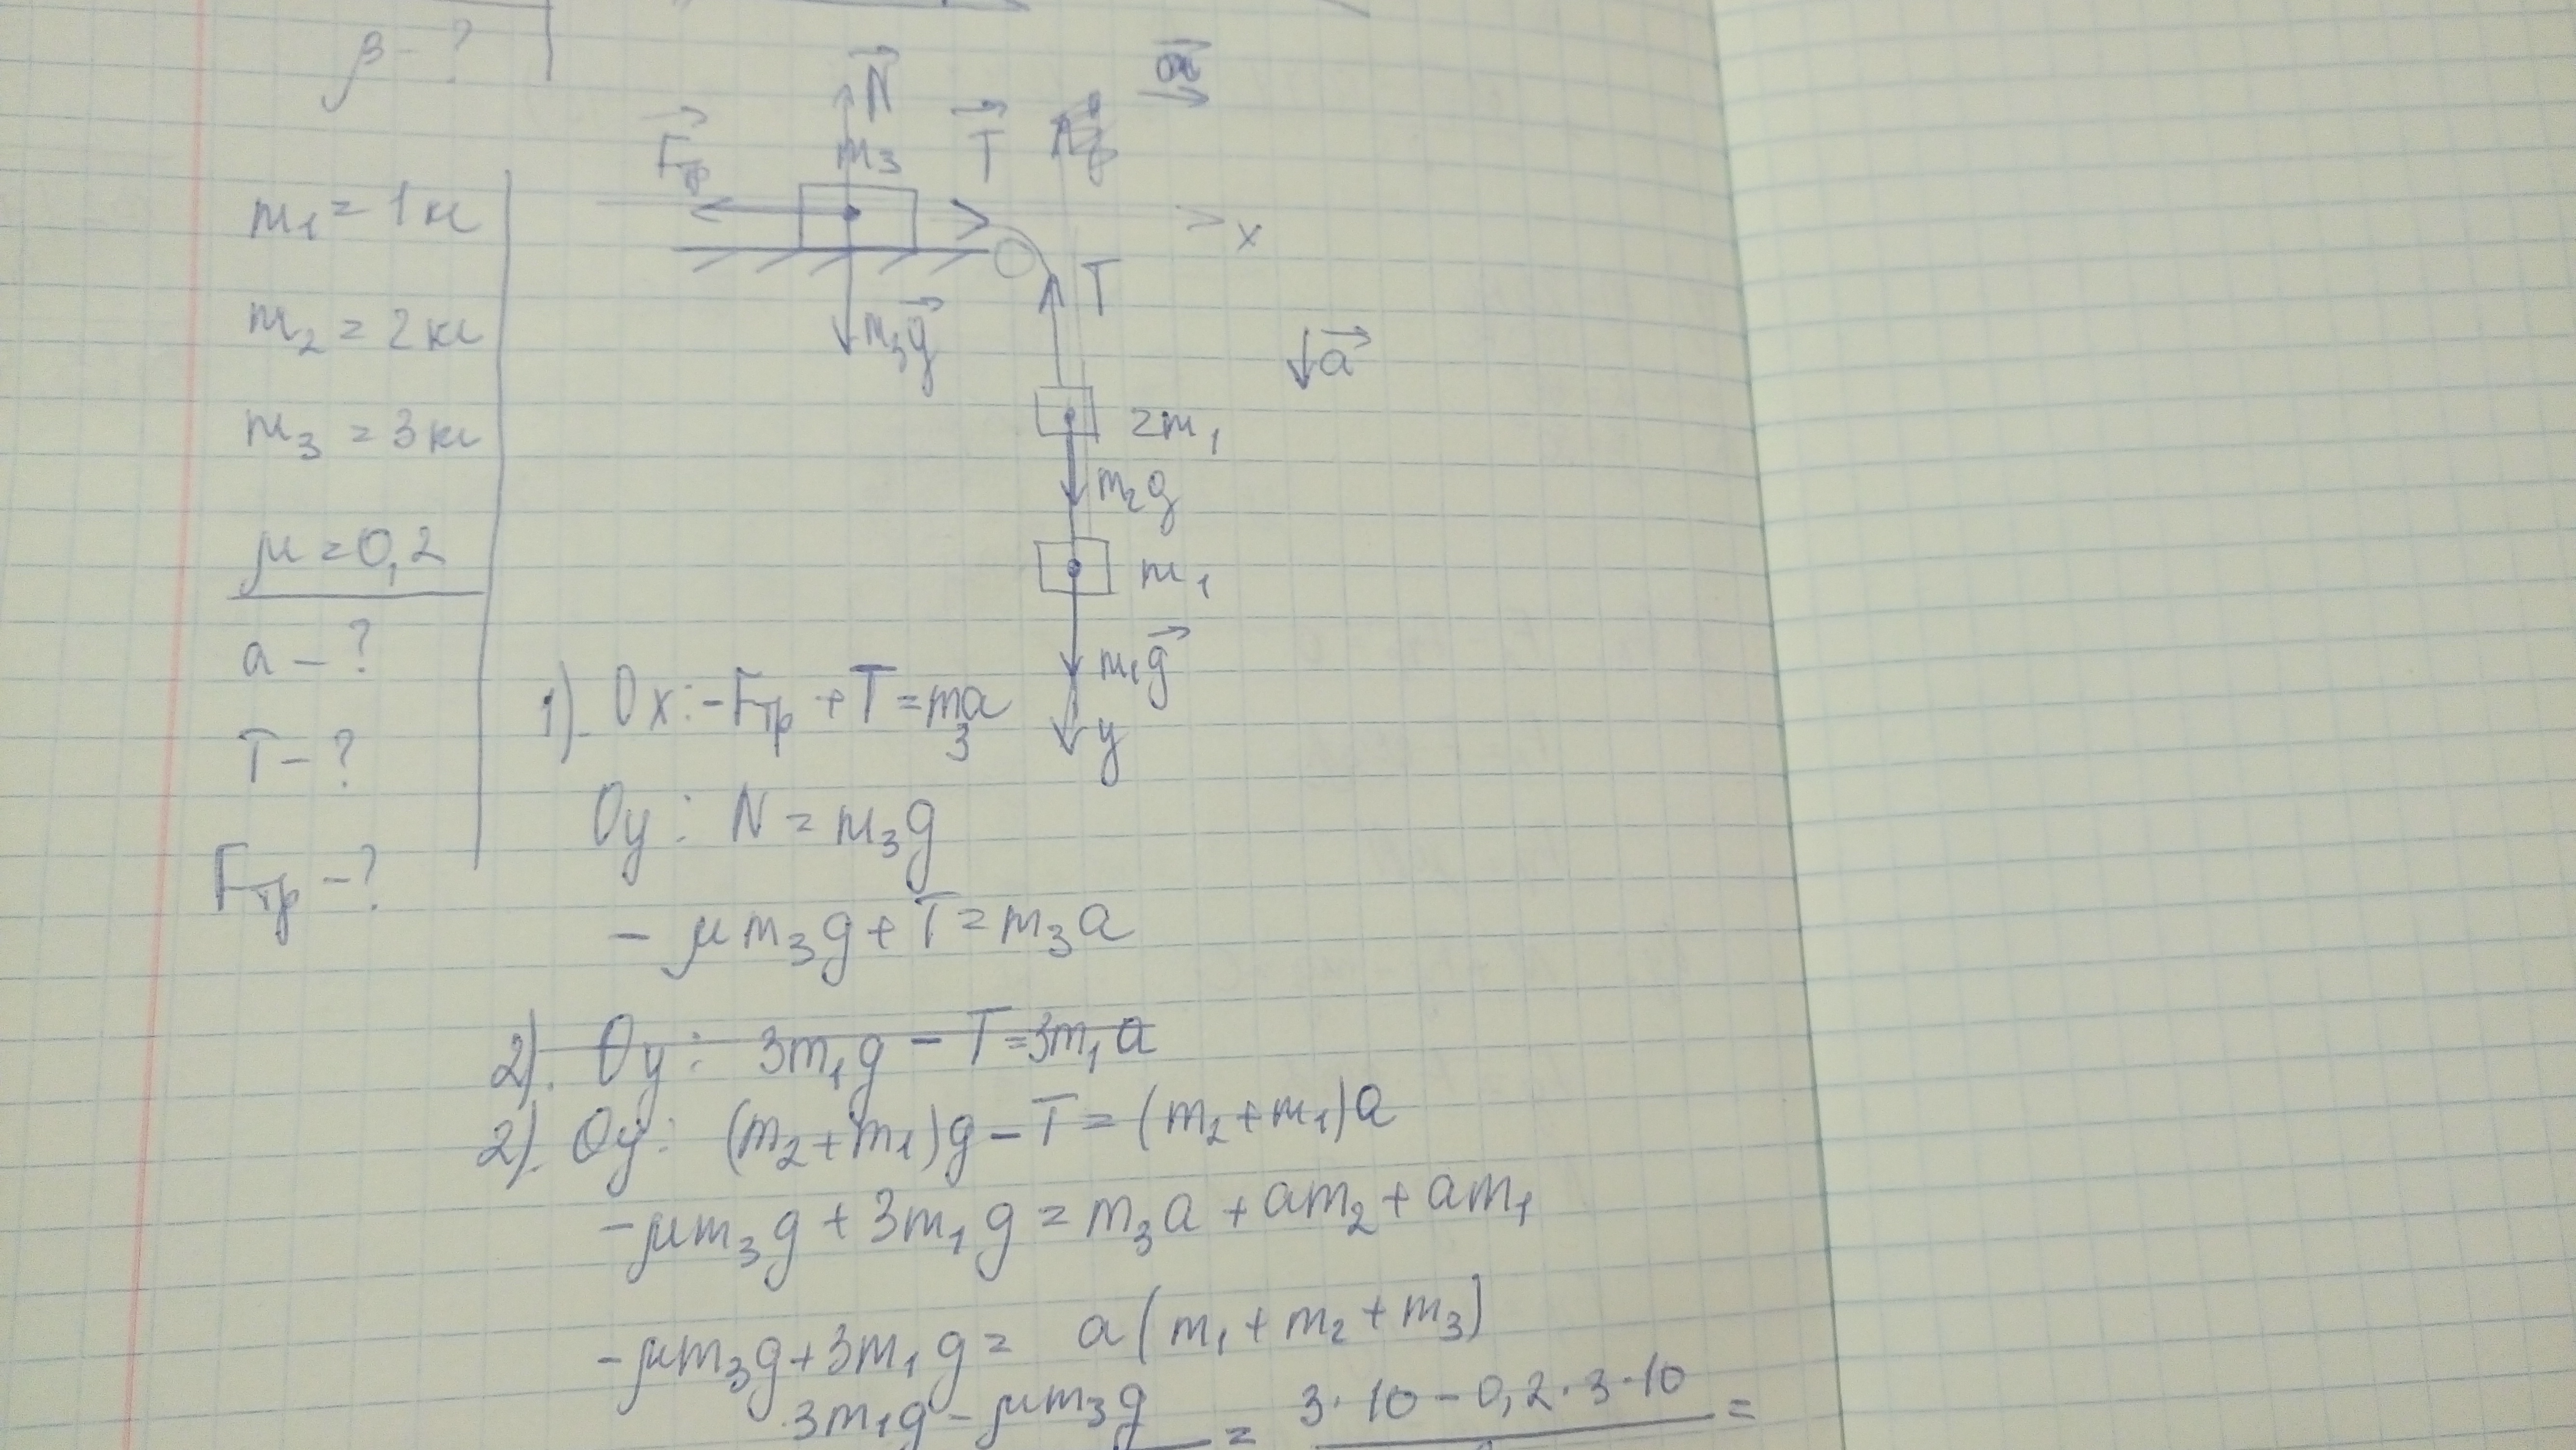 β - ?
m₁ = 1 кг
m₂ = 2 кг
m₃ = 3 кг
μ = 0,2
a - ?
T - ?
Fтр - ?
N
Fтр
m₃
T
x
T
m₃g
a
2m₁
m₂g
m₁
m₁g
y
1). Ox: -Fтр + T = m₃a
Oy: N = m₃g
- μm₃g + T = m₃a
2). Oy: 3m₁g - T = 3m₁a
2). Oy: (m₂ + m₁)g - T = (m₂ + m₁)a
-μm₃g + 3m₁g = m₃a + am₂ + am₁
-μm₃g + 3m₁g = a(m₁ + m₂ + m₃)
3m₁g - μm₃g = 3·10 - 0,2·3·10 =